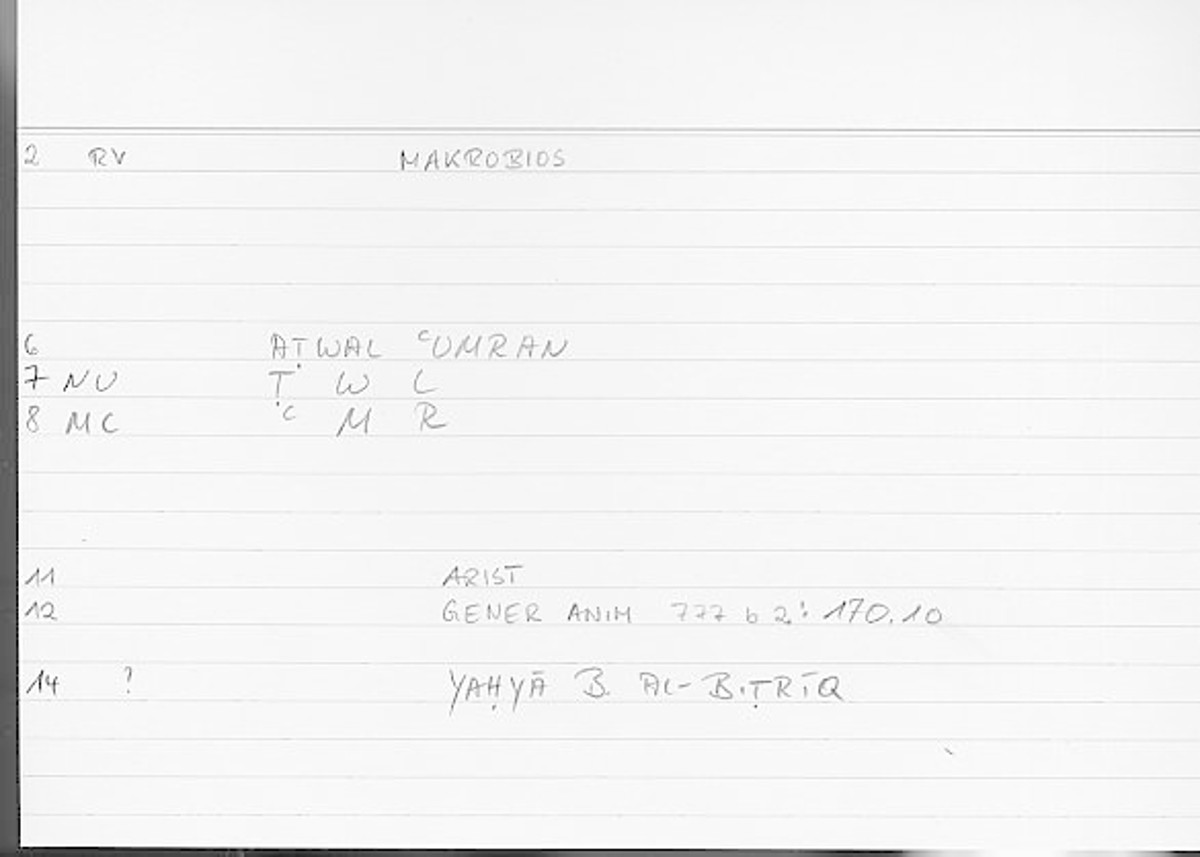 2 RV MAKROBIOS
6 AṬWAL ʿUMRAN
7 NU Ṭ W L
8 MC ʿ M R
11 ARIST
12 GENER ANIM 777 b 2: 170.10
14 ? YAḤYĀ B. AL-BIṬRĪQ